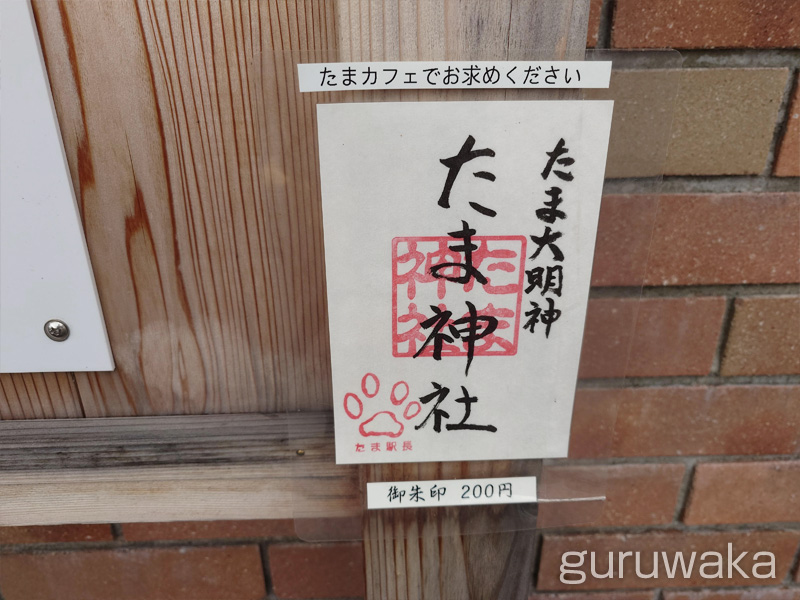 たまカフェでお求めください
たま大明神
たま神社
たま神社
たま駅長
御朱印 200円
guruwaka